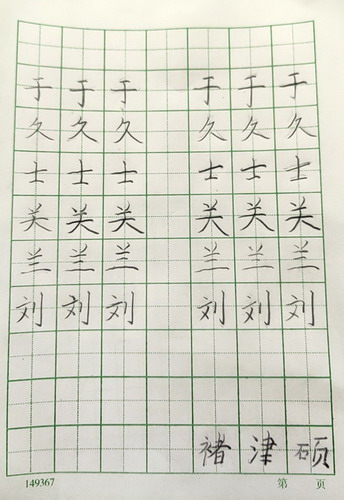 于于于 于于于
久久久 久久久
士士士 士士士
关关关 关关关
兰兰兰 兰兰兰
刘刘刘 刘刘刘
褚津硕
149367 第 页